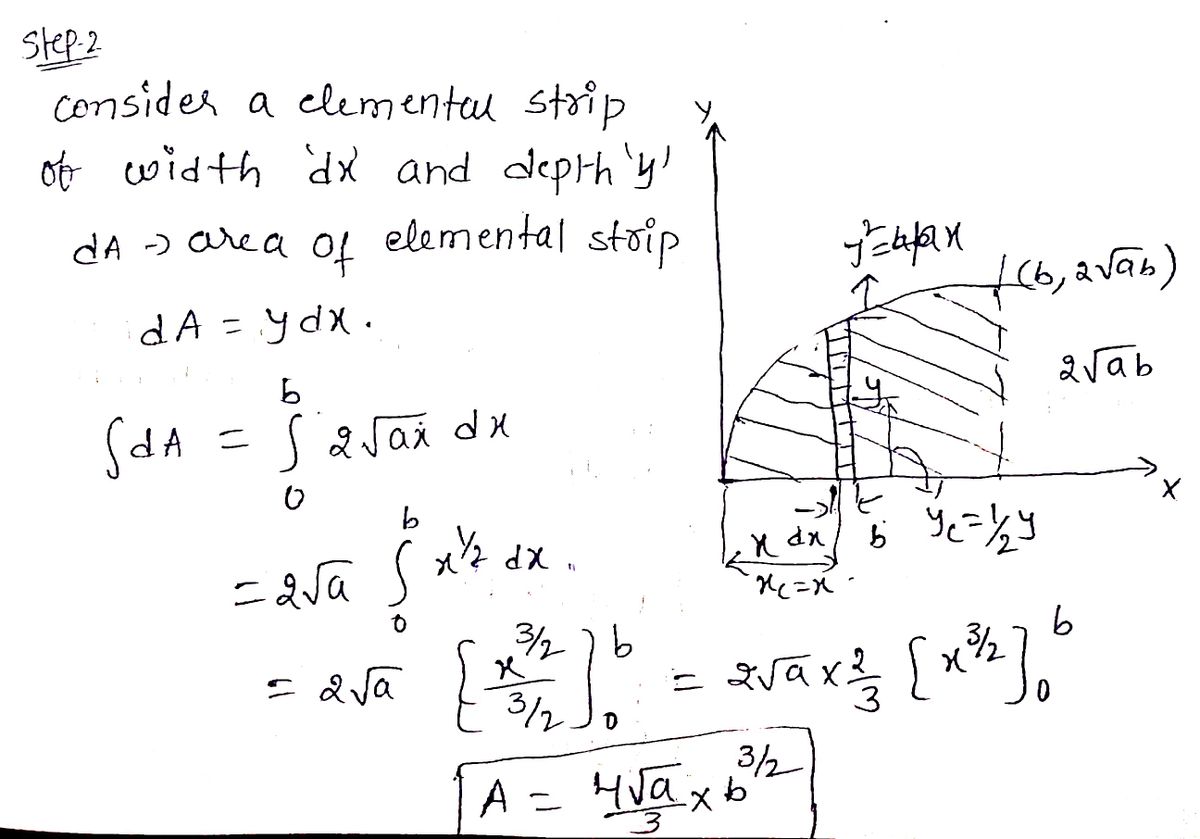 Step-2
consider a elemental strip
of width 'dx' and depth 'y'
dA → area of elemental strip
dA = y dx.
∫dA = ∫₀ᵇ 2√ax dx
= 2√a ∫₀ᵇ x^1/2 dx.
= 2√a [x^3/2 / 3/2]₀ᵇ = 2√a × 2/3 [x^3/2]₀ᵇ
A = 4√a/3 × b^3/2
y
y² = 4ax
(b, 2√ab)
2√ab
y
x
x dx b yc = 1/2 y
xc = x